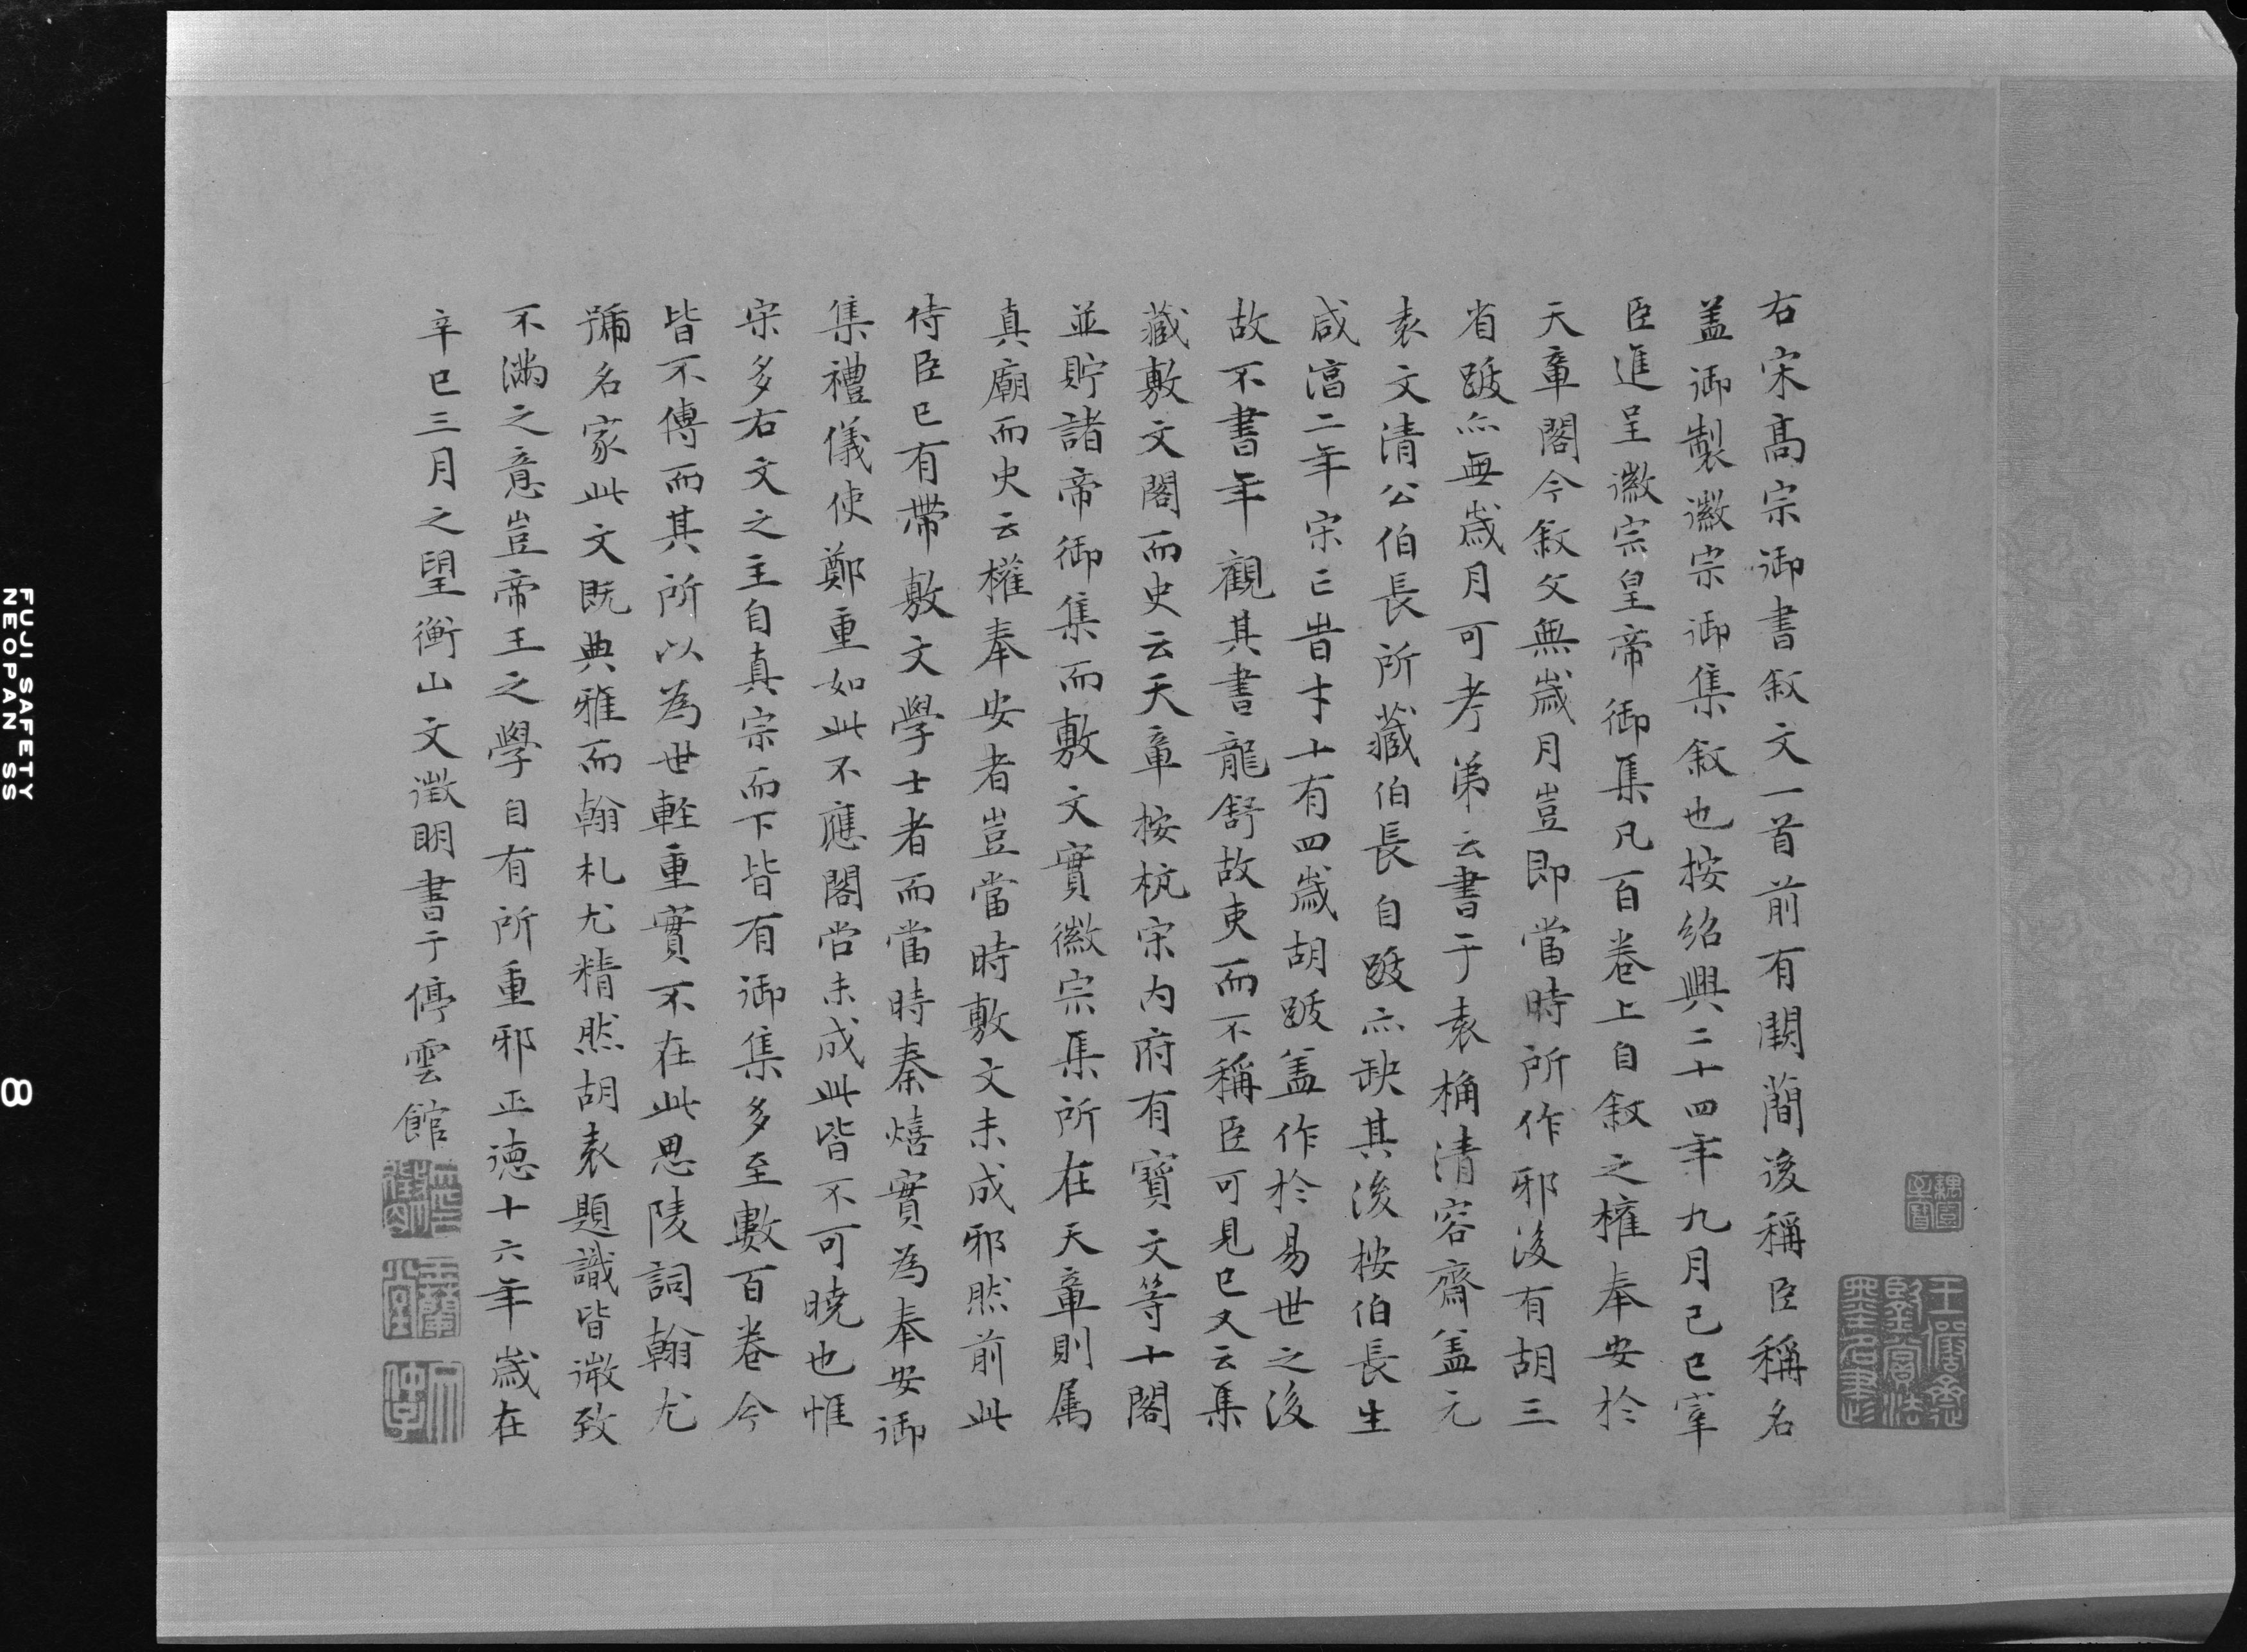 右宋高宗御書叙文一首前有闕簡後稱臣稱名
盖御製徽宗御集叙也按紹興二十四年九月己巳宰
臣進呈徽宗皇帝御集凡百卷上自叙之權奉安於
天章閣今叙文無歲月豈即當時所作邪後有胡三
省䟦亦無歲月可考弟云書于袁桷清容齋盖元
袁文清公伯長所藏伯長自䟦亦缺其後按伯長生
咸淳二年宋亡時才十有四歲胡䟦盖作於易世之後
故不書年觀其書龍舒故吏而不稱臣可見已又云集
藏敷文閣而史云天章按杭宋内府有寶文等十閣
並貯諸帝御集而敷文實徽宗集所在天章則属
真廟而史云權奉安者豈當時敷文未成邪然前此
侍臣已有帶敷文學士者而當時秦熺實為奉安御
集禮儀使鄭重如此不應閣尚未成此皆不可曉也惟
宋多右文之主自真宗而下皆有御集多至數百卷今
皆不傳而其所以為世輕重實不在此思陵詞翰尤
號名家此文既典雅而翰札尤精然胡袁題識皆微致
不滿之意豈帝王之學自有所重邪正德十六年歲在
辛巳三月之望衡山文徵明書于停雲館
FUJI SAFETY
NEOPAN SS
8